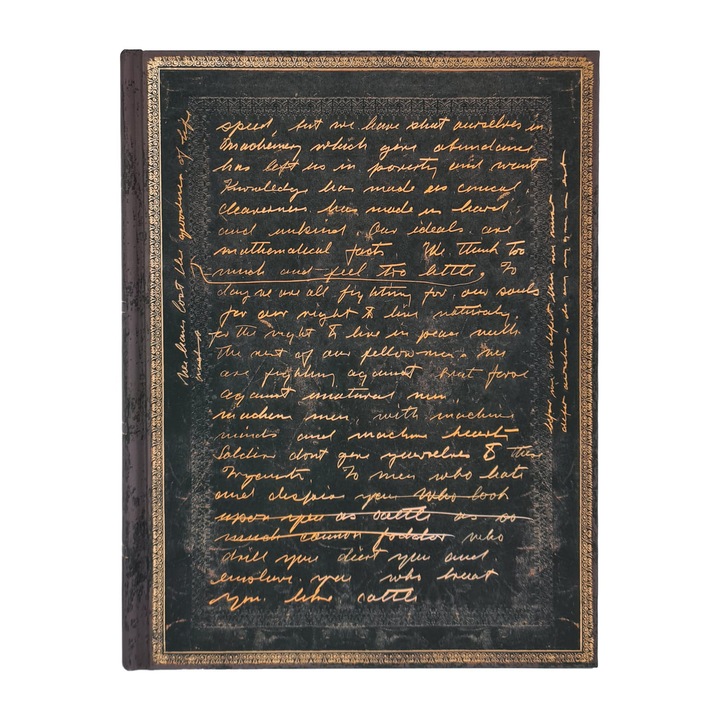 speed, but we have shut ourselves in
machinery which give abundance
has left us in poverty and want
Knowledge has made us conical,
cleaverness has made us hard
and unkind. Our ideals are
mathematical facts We think too
much and feel too little. To
day we are all fighting for our souls
for our right to live naturaly,
for the right to live in peace with
the rest of our fellow men. We
are fighting against brat force
against unatural men
machen men, with machine
minds and machine hearts
Soldiers dont give yourselves to these
To men who hate
and despise you Who look
upon you as cattle as so
much cannon fodder who
drill you diet you and
enslave you who treat
you like cattle
We have lost the of life